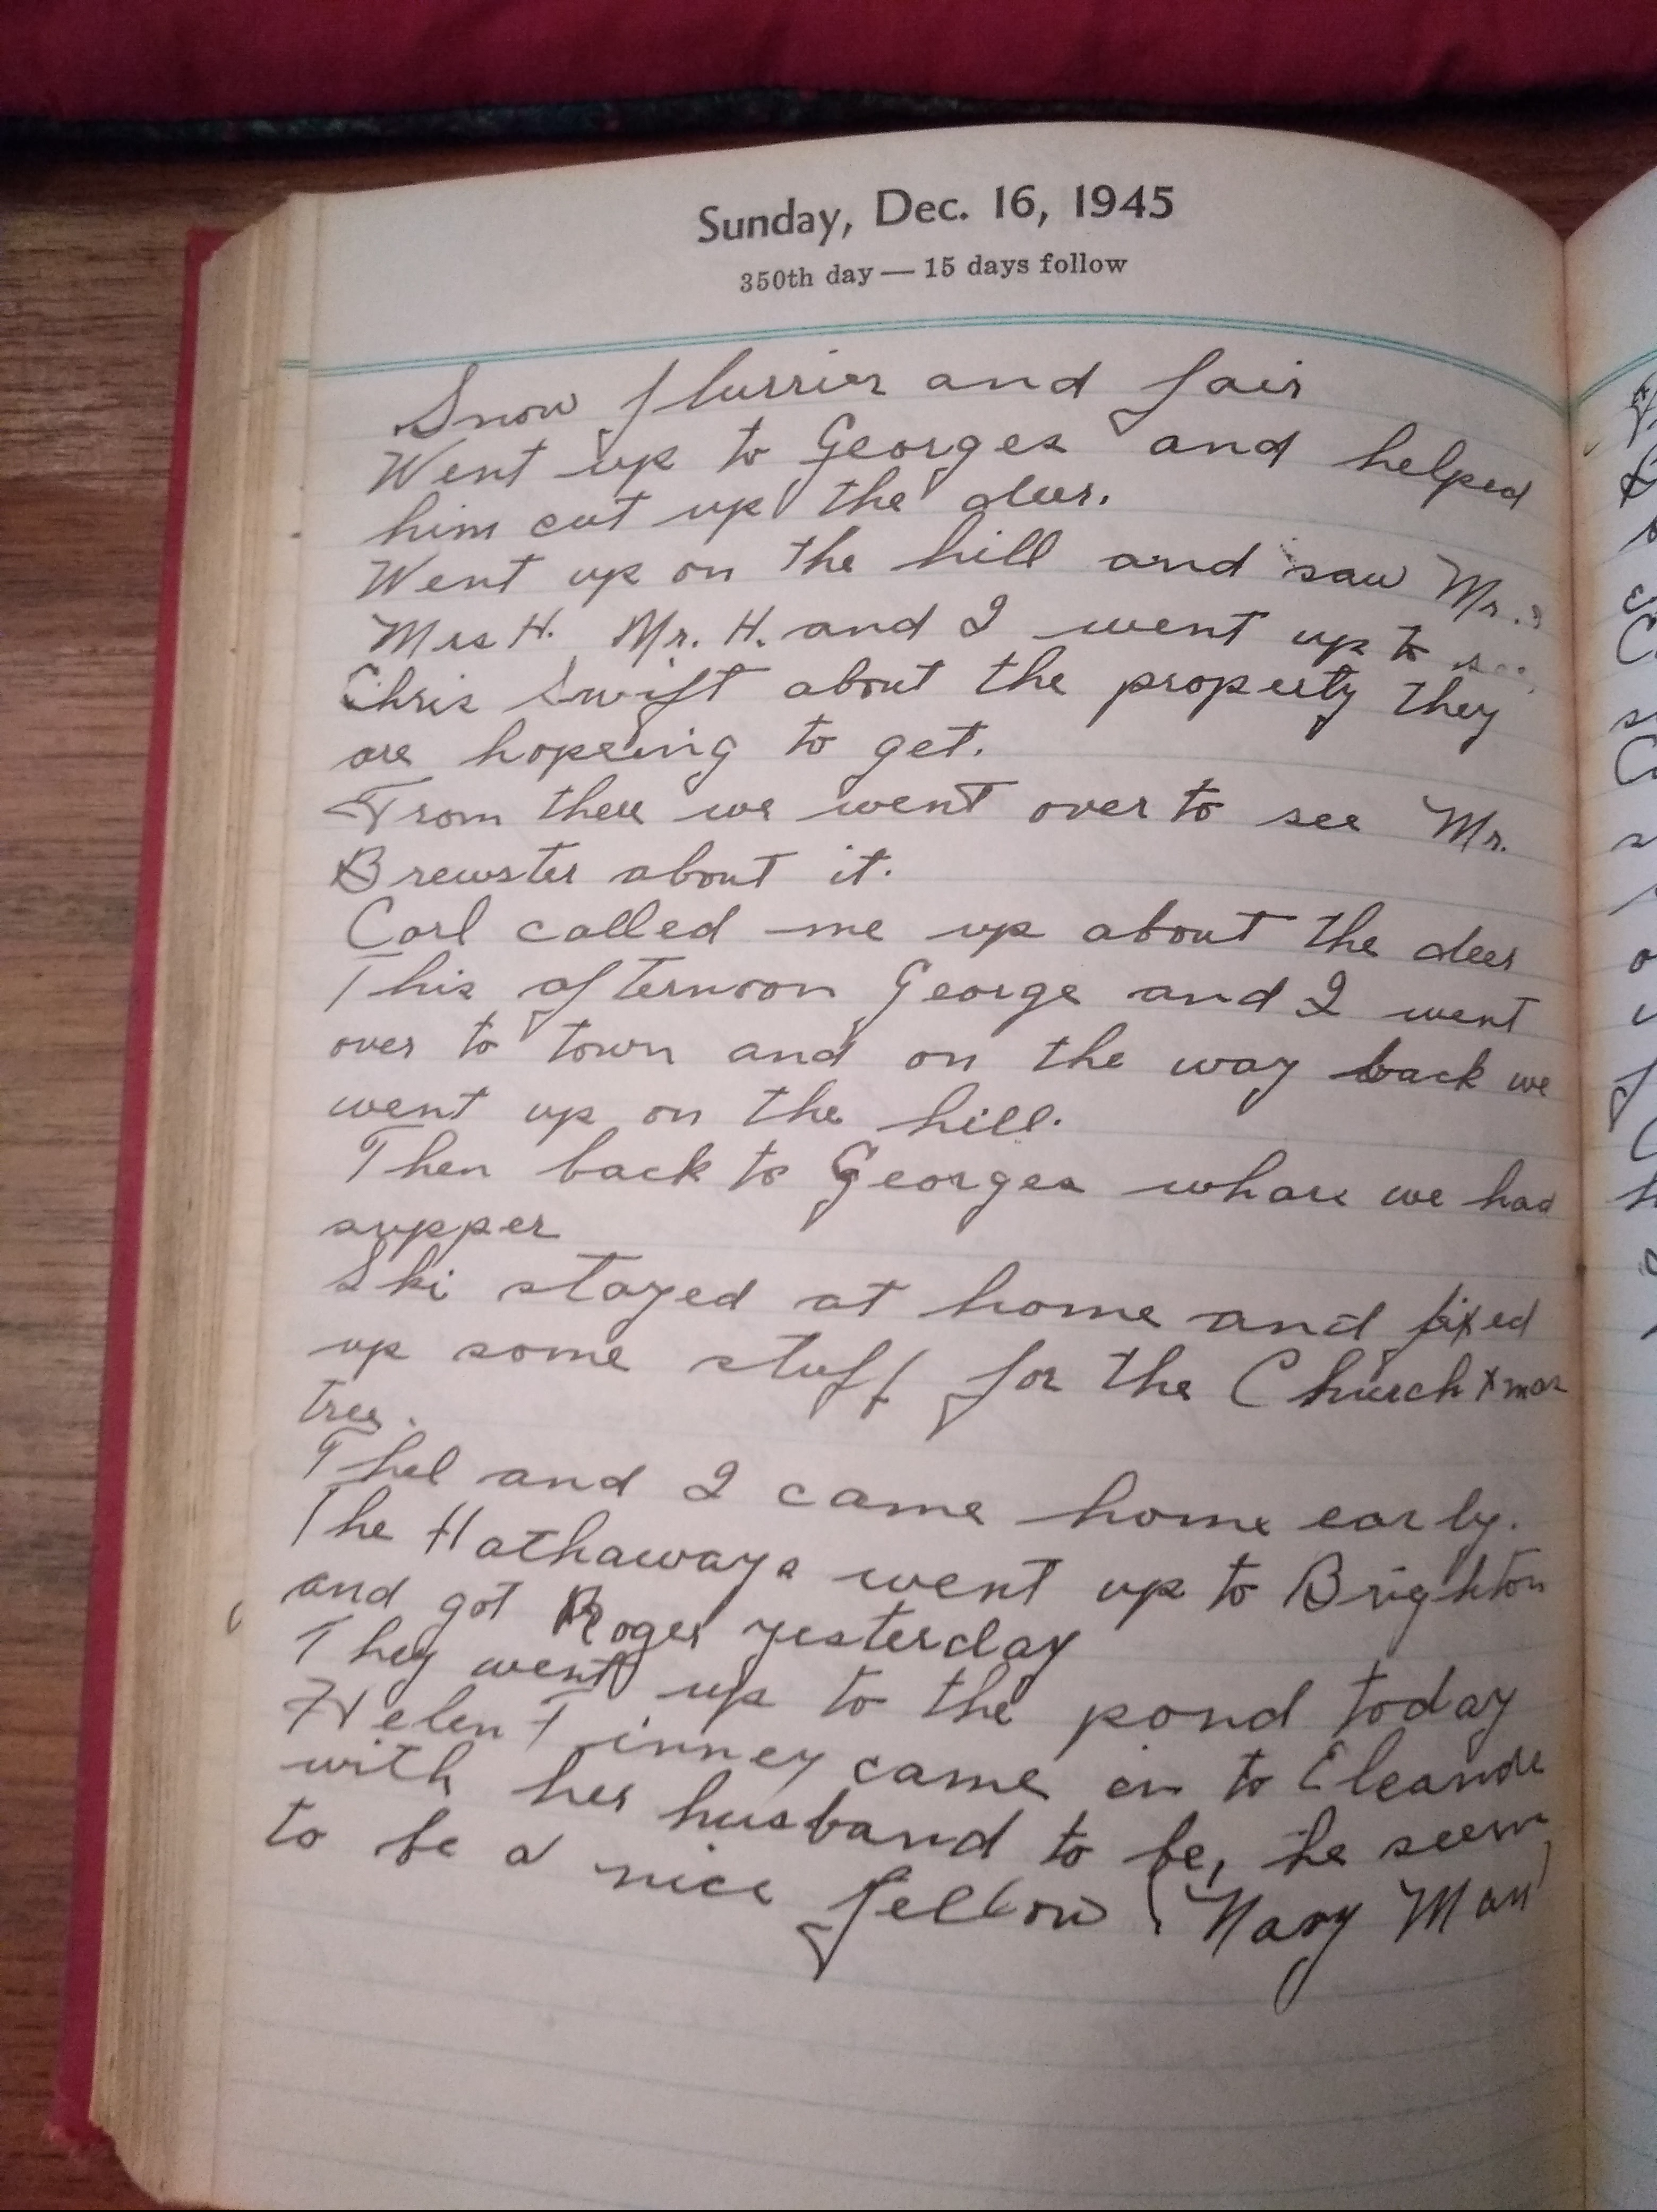 Sunday, Dec. 16, 1945
350th day — 15 days follow
Snow flurries and fair
Went up to Georges and helped
him cut up the deer.
Went up on the hill and saw Mr. &
Mrs H. Mr. H. and I went up to
Chris Swift about the property they
are hopeing to get.
From there we went over to see Mr.
Brewster about it.
Carl called me up about the deer
This afternoon George and I went
over to town and on the way back we
went up on the hill.
Then back to Georges whare we had
supper
Ski stayed at home and fixed
up some stuff for the Church Xmas
tree.
Thel and I came home early.
The Hathaways went up to Brighton
and got Roger yesterday
They went up to the pond today
Helen Tinney came in to
with her husband to be, he seem
to be a nice fellow (Navy Man)